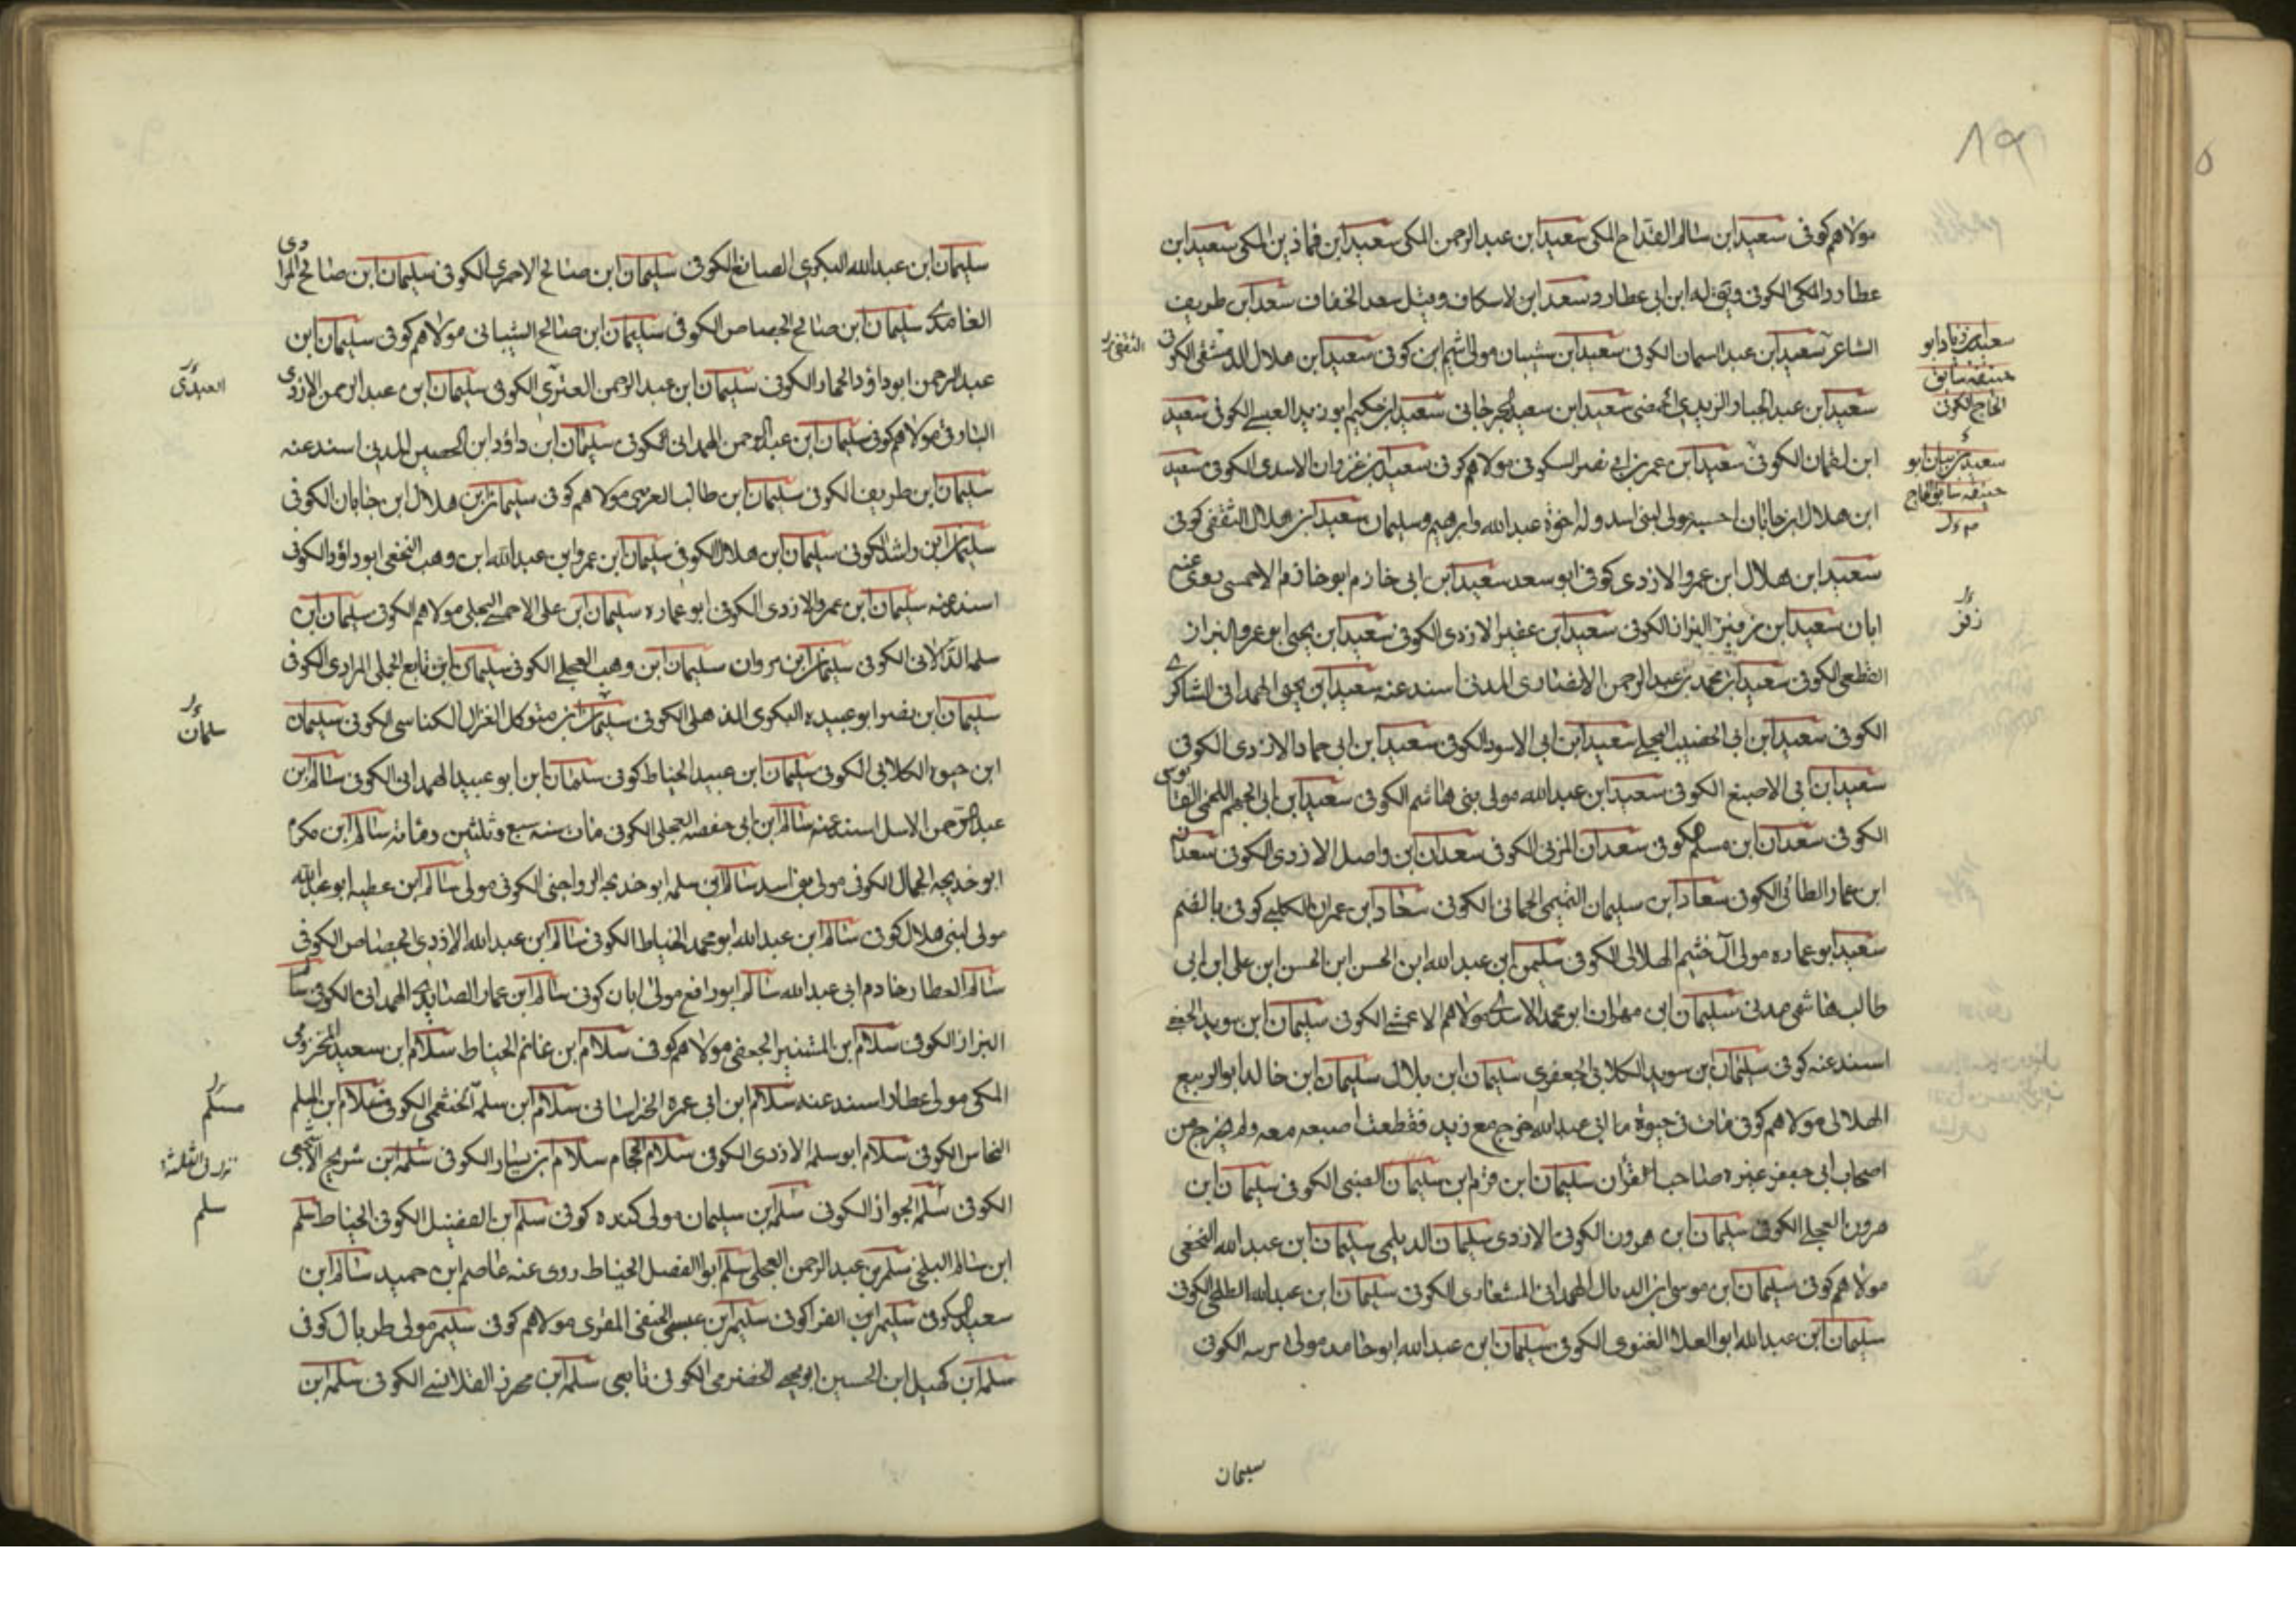 مولاهم كوفى سعيد ابن سالم القداح المكى سعيد ابن عبدالرحمن المكى سعيد ابن المكى سعيد ابن
عطارد المكى الكوفى ويق له ابن ابى عطارد سعد ابن الاسكاف وقيل سعد الخفاف سعد ابن طريف
الشاعر سعيد ابن عبد الكوفى سعيد ابن شيبان مولى كوفى سعيد ابن هلال الدمشقى الكوفى
سعيد ابن عبد الجبار الزبيدى الحمصى سعيد ابن سعيد الجرجانى سعيد ابن حكيم ابو زيد العبسے الكوفى سعيد
ابن لقمان الكوفى سعيد ابن عمر بن ابى نصر السكونى مولاهم كوفى سعيد بن غزوان الاسدى الكوفى سعيد
ابن هلال ابن جابان احسبه مولى لبنى اسد وله اخوة عبدالله وابرهيم وسليمان سعيد ابن هلال الثقفى كوفى
سعيد ابن هلال ابن عمرو الازدى كوفى ابو سعد سعيد ابن ابى خازم ابو خازم الاحمسى روى عنه
ابان سعيد ابن البزاز الكوفى سعيد ابن عفير الازدى الكوفى سعيد ابن يحيى ابو عمرو البزاز
القطعى الكوفى سعيد ابن محمد بن عبدالرحمن الانصارى المدنى اسند عنه سعيد ابن يحيى الهمدانى الشاكرے
الكوفى سعيد ابن ابى الخضيب البجلے سعيد ابن ابى الاسود الكوفى سعيد ابن ابى حماد الازدى الكوفى
سعيد ابن ابى الاصبغ الكوفى سعيد ابن عبدالله مولى بنى هاشم الكوفى سعيد ابن ابى الجهم اللخمى القابوسى
الكوفى سعدان ابن مسلم كوفى سعدان المزنى الكوفى سعدان ابن واصل الازدى الكوفى سعدان
ابن عمار الطائى الكوفى سعاد ابن سليمان التميمى الحمانى الكوفى سعاد ابن عمران الكلبے كوفى بالضم
سعيد ابو عماره مولى آل خثيم الهلالى الكوفى سليمن ابن عبدالله ابن الحسن ابن الحسن ابن على ابن ابى
طالب هاشمى مدنى سليمان ابن مهران ابو محمد الاسدے مولاهم الاعمشے الكوفى سليمان ابن سويد الجعفے
اسند عنه كوفى سليمان ابن سويد الكلابى الجعفرى سليمان ابن بلال سليمان ابن خالد ابو الربيع
الهلالى مولاهم كوفى مات فى حيوة ابى عبدالله خرج مع زيد فقطعت اصبعه معه ولم يخرج من
اصحاب ابى جعفر غيره صاحب القرآن سليمان ابن قرم ابن سليمان الضبى الكوفى سليمان ابن
هرون العجلے الكوفى سليمان ابن هرون الكوفى الازدى سليمان الديلمى سليمان ابن عبدالله النخعى
مولاهم كوفى سليمان ابن موسى ابن الهمدانى المشعارى الكوفى سليمان ابن عبدالله الطلحى الكوفى
سليمان ابن عبدالله ابو العلا الغنوى الكوفى سليمان ابن عبدالله ابو حامد مولى الكوفى
سليمان
سعيد بن زياد ابو
حنيفه سابق
الحاج الكوفى
سعيد بن بيان ابو
حنيفه سابق الحاج
زفر
سليمان ابن عبدالله البكرى الصايغ الكوفى سليمان ابن صالح الاحمرى الكوفى سليمان ابن صالح المرادى
الغامدے سليمان ابن صالح الجصاص الكوفى سليمان ابن صالح الشيبانى مولاهم كوفى سليمان ابن
عبدالرحمن ابو داود الحمار الكوفى سليمان ابن عبدالرحمن الكوفى سليمان ابن عبدالرحمن الازدى
البارقى مولاهم كوفى سليمان ابن عبدالرحمن الهمدانى الكوفى سليمان ابن داود ابن الحصين المدنى اسند عنه
سليمان ابن طريف الكوفى سليمان ابن طالب مولاهم كوفى سليمان ابن هلال ابن جابان الكوفى
سليمان ابن راشد الكوفى سليمان ابن هلال الكوفى سليمان ابن عمرو ابن عبدالله ابن وهب النخعى ابو داود الكوفى
اسند عنه سليمان ابن عمرو الازدى الكوفى ابو عماره سليمان ابن على الاحمسے البجلى مولاهم الكوفى سليمان ابن
الكوفى سليمان ابن سليمان ابن وهب العجلے الكوفى سليمان ابن الجملى المرادى الكوفى
سليمان ابن ابو عبيده البكرى الذهلى الكوفى سليمان ابن متوكل الغزال الكناسى الكوفى سليمان
ابن حيوه الكلابى الكوفى سليمان ابن عبيد الحناط كوفى سلمان ابن ابو عبيد الهمدانى الكوفى سالم ابن
عبدالرحمن الاسل اسند عنه سالم ابن ابى حفصه العجلى الكوفى مات سنه سبع وثلثين ومائه سالم ابن مكرم
ابو خديجه الجمال الكوفى مولى بنى اسد سالم ابن سلمه ابو خديجه الرواجنى الكوفى مولى سالم ابن عطيه ابو عبدالله
مولى لبنى هلال كوفى سالم ابن عبدالله ابو محمد الحناط الكوفى سالم ابن عبدالله الازدى الجصاص الكوفى
سالم العطار خادم ابى عبدالله سالم ابو رافع مولى ابان كوفى سالم ابن عمار الصائدى الهمدانى الكوفى سالم
البزاز الكوفى سلام ابن المستنير الجعفى مولاهم كوفى سلام ابن غانم الحناط سلام ابن سعيد المخزومى
المكى مولى عطا اسند عنه سلام ابن ابى عمره الخراسانى سلام ابن سلمه الخثعمى الكوفى سلام ابن المسلم
النخاس الكوفى سلام ابو سلمه الازدى الكوفى سلام الحجام سلام ابن يسار الكوفى سلمه ابن شريح الاشجعى
الكوفى سلم الجواز الكوفى سلمه ابن سليمان مولى كنده كوفى سلم ابن الفضيل الكوفى الحناط سلم
ابن سالم البلخى سلم ابن عبدالرحمن العجلى سلم ابو الفضل الحناط روى عنه عاصم ابن حميد سالم ابن
سعيد كوفى سليم ابن الفرا كوفى سليم ابن عيسى الحنفى المقرى مولاهم كوفى سليم مولى طربال كوفى
سلمه ابن كهيل ابن الحسين ابو يحيے الحضرمى الكوفى تابعى سلمه ابن محرز القلانسے الكوفى سلمه ابن
العبدى
سلمان
مسلم
سلم